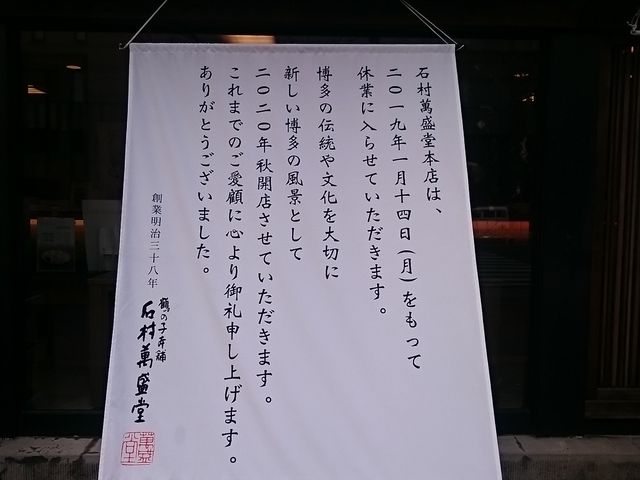 石村萬盛堂本店は、
二〇一九年一月十四日(月)をもって
休業に入らせていただきます。
博多の伝統や文化を大切に
新しい博多の風景として
二〇二〇年秋開店させていただきます。
これまでのご愛顧に心より御礼申し上げます。
ありがとうございました。
創業明治三十八年
鶴乃子本舗
石村萬盛堂
萬盛堂